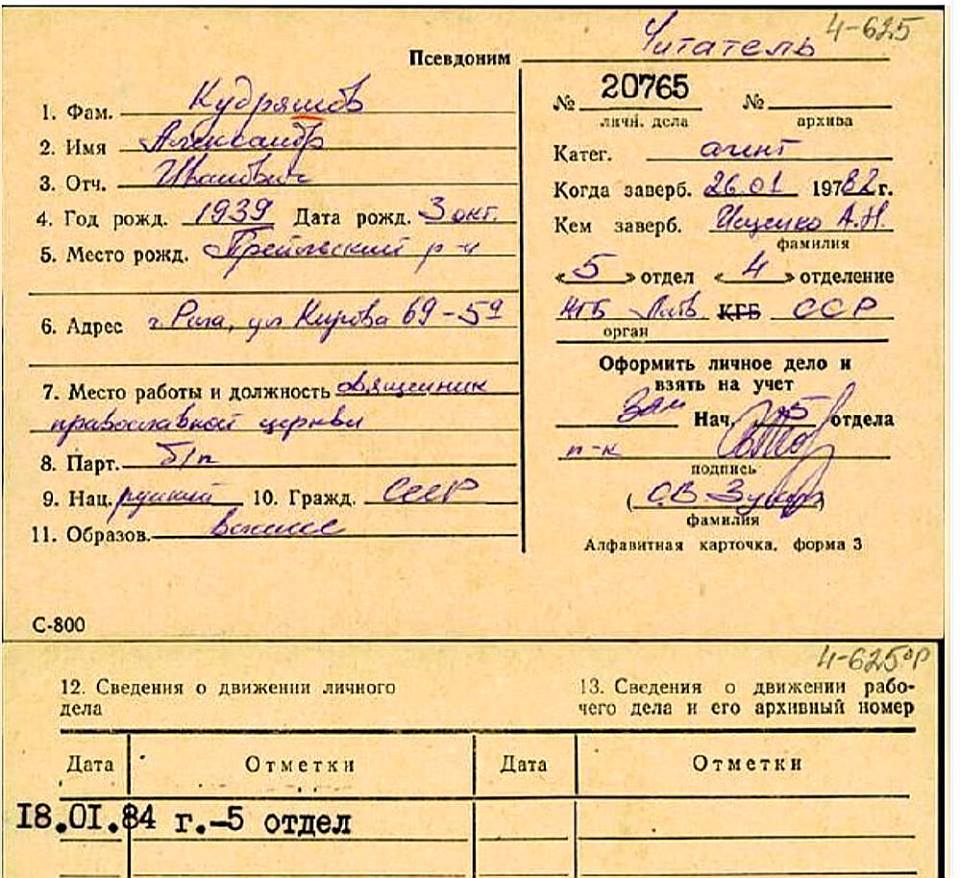 4-625
Псевдоним Читатель
1. Фам. Кудряшов
2. Имя Александр
3. Отч. Иванович
4. Год рожд. 1939 Дата рожд. 3 окт.
5. Место рожд. Прейльский р-н
6. Адрес г. Рига, ул Кирова 69-59
7. Место работы и должность Священник
православной церкви
8. Парт. б/п
9. Нац. русский 10. Гражд. СССР
11. Образов. высшее
С-800
№ 20765 № 
личн. дела архива
Катег. агент
Когда заверб. 26.01 1982 г.
Кем заверб. Ищенко А.Н.
фамилия
«5» отдел «4» отделение
КГБ Латв. КГБ ССР
орган
Оформить личное дело и
взять на учет
Зам Нач. 5 отдела
п-к
подпись
(С.В. )
фамилия
Алфавитная карточка, форма 3
4-625 ор
12. Сведения о движении личного
дела
13. Сведения о движении рабо-
чего дела и его архивный номер
Дата Отметки Дата Отметки
18.01.84 г.-5 отдел